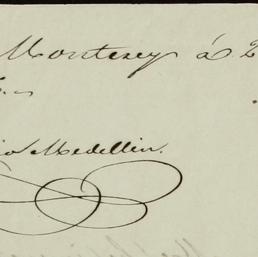 Monterey á 2
io Medellin.